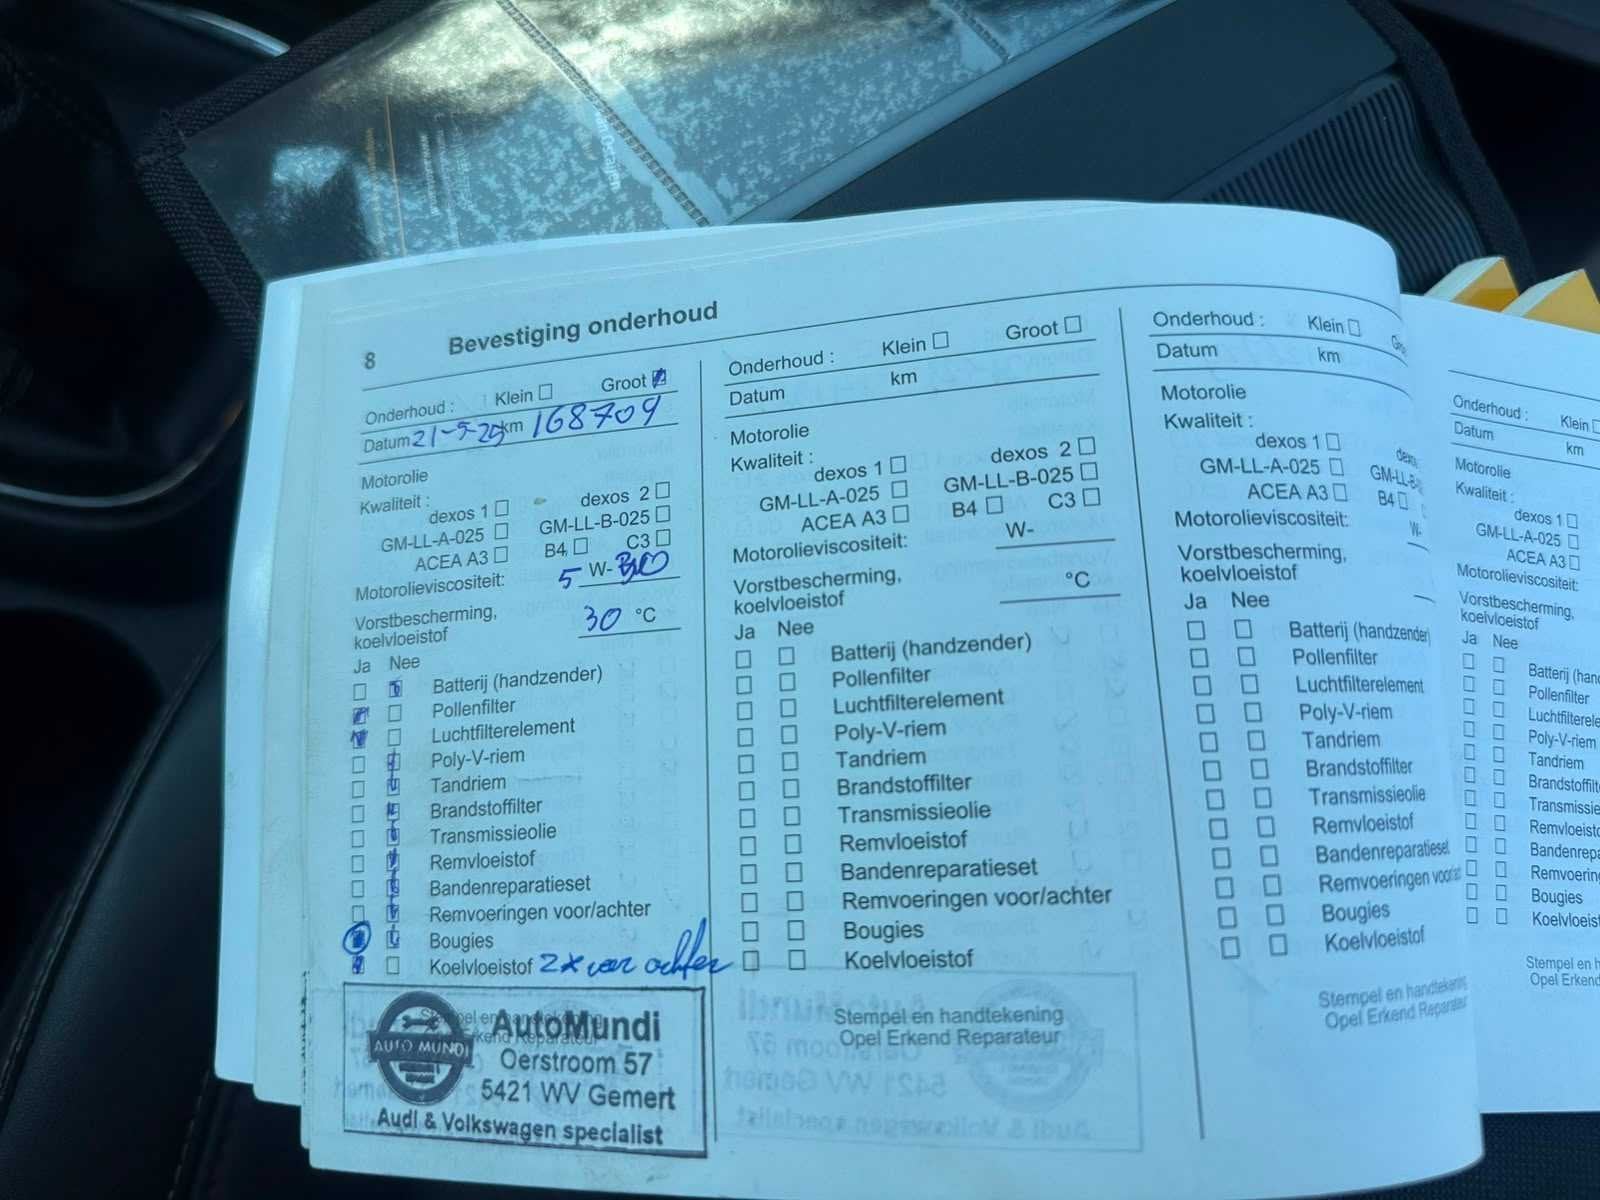 8 Bevestiging onderhoud
Onderhoud : Klein Groot
Datum 21-5-25 km 168709
Motorolie
Kwaliteit :
dexos 1 dexos 2
GM-LL-A-025 GM-LL-B-025
ACEA A3 B4 C3
Motorolieviscositeit: 5 W-30
Vorstbescherming,
koelvloeistof 30 °C
Ja Nee
Batterij (handzender)
Pollenfilter
Luchtfilterelement
Poly-V-riem
Tandriem
Brandstoffilter
Transmissieolie
Remvloeistof
Bandenreparatieset
Remvoeringen voor/achter
Bougies
Koelvloeistof 2x voor achter
AutoMundi
AUTO MUNDI
Oerstroom 57
5421 WV Gemert
Audi & Volkswagen specialist
Onderhoud : Klein Groot
Datum km
Motorolie
Kwaliteit :
dexos 1 dexos 2
GM-LL-A-025 GM-LL-B-025
ACEA A3 B4 C3
Motorolieviscositeit: W-
Vorstbescherming,
koelvloeistof °C
Ja Nee
Batterij (handzender)
Pollenfilter
Luchtfilterelement
Poly-V-riem
Tandriem
Brandstoffilter
Transmissieolie
Remvloeistof
Bandenreparatieset
Remvoeringen voor/achter
Bougies
Koelvloeistof
Stempel en handtekening
Opel Erkend Reparateur
Onderhoud : Klein
Datum km
Motorolie
Kwaliteit :
dexos 1
GM-LL-A-025
ACEA A3 B4
Motorolieviscositeit: W-
Vorstbescherming,
koelvloeistof
Ja Nee
Batterij (handzender)
Pollenfilter
Luchtfilterelement
Poly-V-riem
Tandriem
Brandstoffilter
Transmissieolie
Remvloeistof
Bandenreparatieset
Remvoeringen
Bougies
Koelvloeistof
Stempel en handtekening
Opel Erkend Reparateur
Onderhoud : Klein
Datum km
Motorolie
Kwaliteit :
dexos 1
GM-LL-A-025
ACEA A3
Motorolieviscositeit:
Vorstbescherming,
koelvloeistof
Ja Nee
Batterij
Pollenfilter
Poly-V-riem
Tandriem
Bougies
Stempel en
Opel Erkend